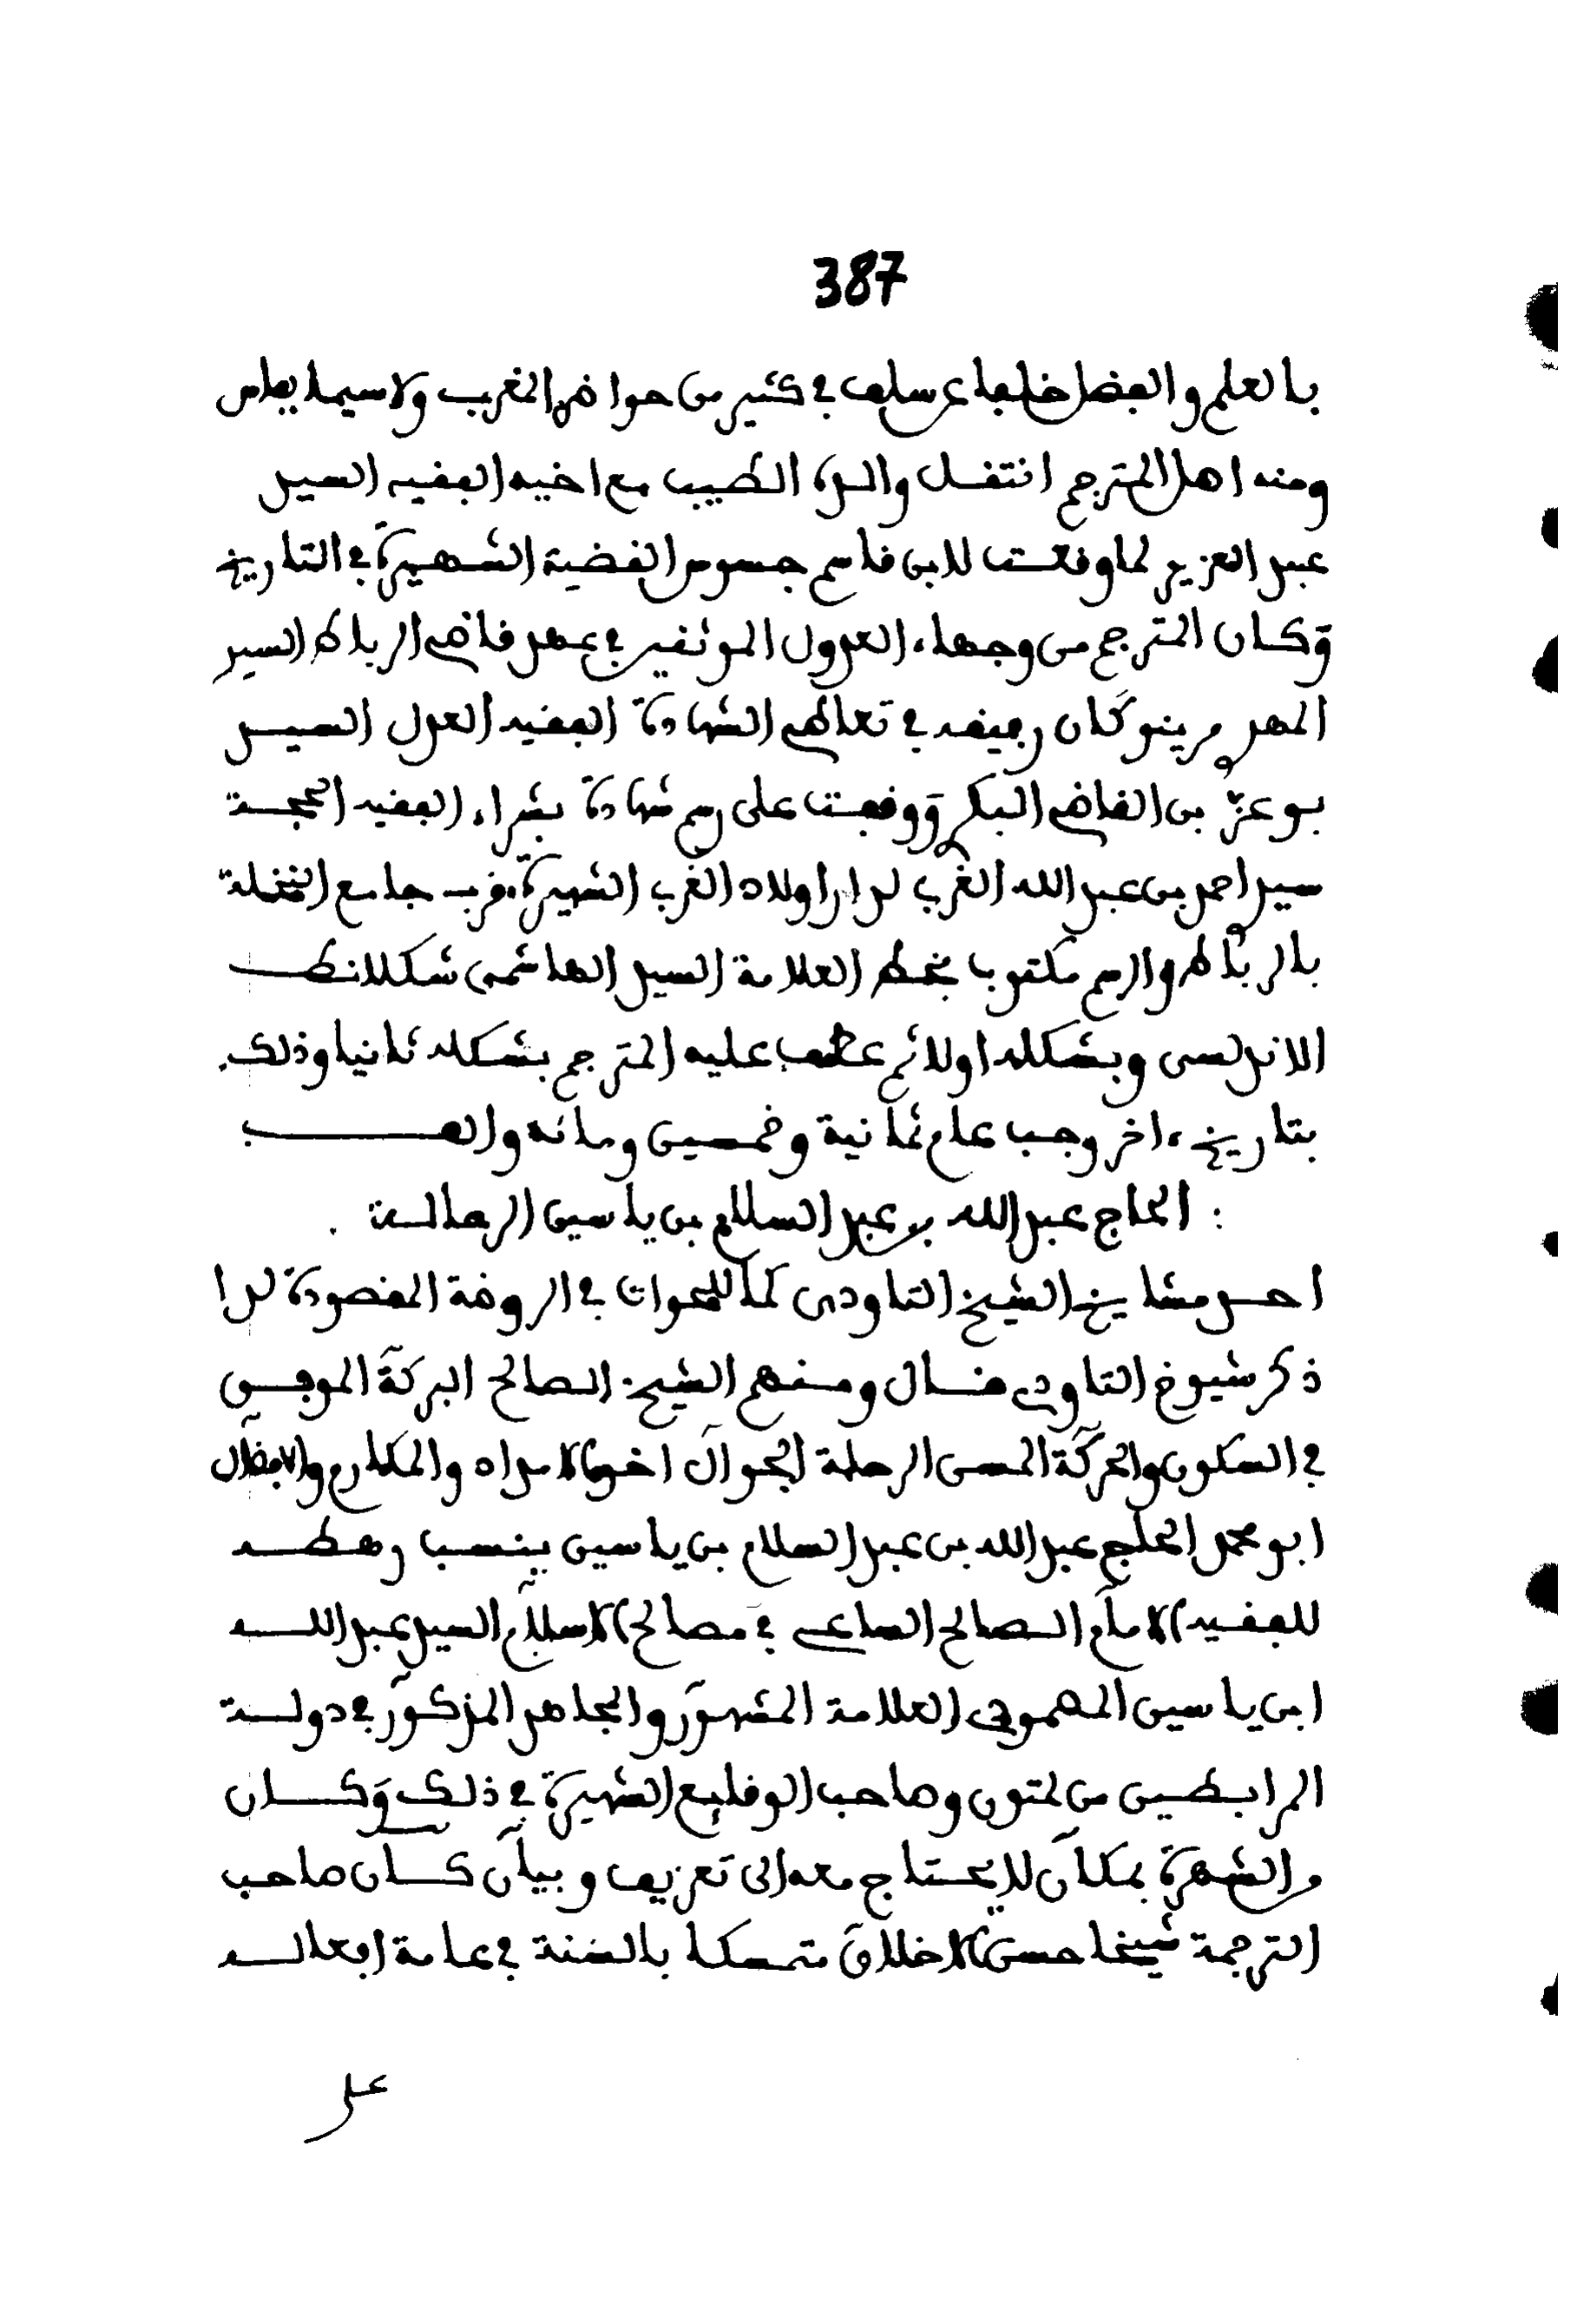 387
بالعلم والفضل خلفا عن سلف في كثير من حواضر المغرب ولاسيما بفاس
ومنه اهل المترجم انتقل والده الطيب مع اخيه الفقيه السيد
عبد العزيز لما وقعت لابن قاسم جسوس القضية الشهيرة في التاريخ
وكان المترجم من وجهاء العدول الموثقين في عهد قاضي الرباط السيد
المهدي مرينو كان رفيقه في تعاطي الشهادة الفقيه العدل السيد
بوعزة بن القاضي البكري ووقفت على رسم شهادة بشراء الفقيه الحجة
سيد احمد بن عبد الله الغربي لدار اولاد الغربي الشهيرة قرب جامع النخلة
بالرباط والرسم مكتوب بخط العلامة السيد الهاشمي شكلانط
الاندلسي وبشكله اولا ثم عطف عليه المترجم بشكله ثانيا وذلك
بتاريخ ءاخر رجب عام ثمانية وخمسين ومائة والف
: الحاج عبد الله بن عبد السلام بن ياسين الرحالة .
احد مشايخ الشيخ التاودي كما للحوات في الروضة المقصودة لدا
ذكر شيوخ التاودي قال ومنهم الشيخ الصالح البركة الموفق
في السكون والحركة المسن الرحلة الجوال اخو الامداد والمكارم والافضال
ابو محمد الحاج عبد الله بن عبد السلام بن ياسين ينسب رهطه
للفقيه الامام الصالح الساعي في مصالح الاسلام السيد عبد الله
ابن ياسين المصمودي العلامة المشهور والمجاهد المذكور في دولة
المرابطين من لمتون وصاحب الوقايع الشهيرة في ذلك وكان
من الشهرة بمكان لا يحتاج معه الى تعريف وبيان كان صاحب
الترجمة شيخا حسن الاخلاق متمسكا بالسنة في عامة افعاله
على